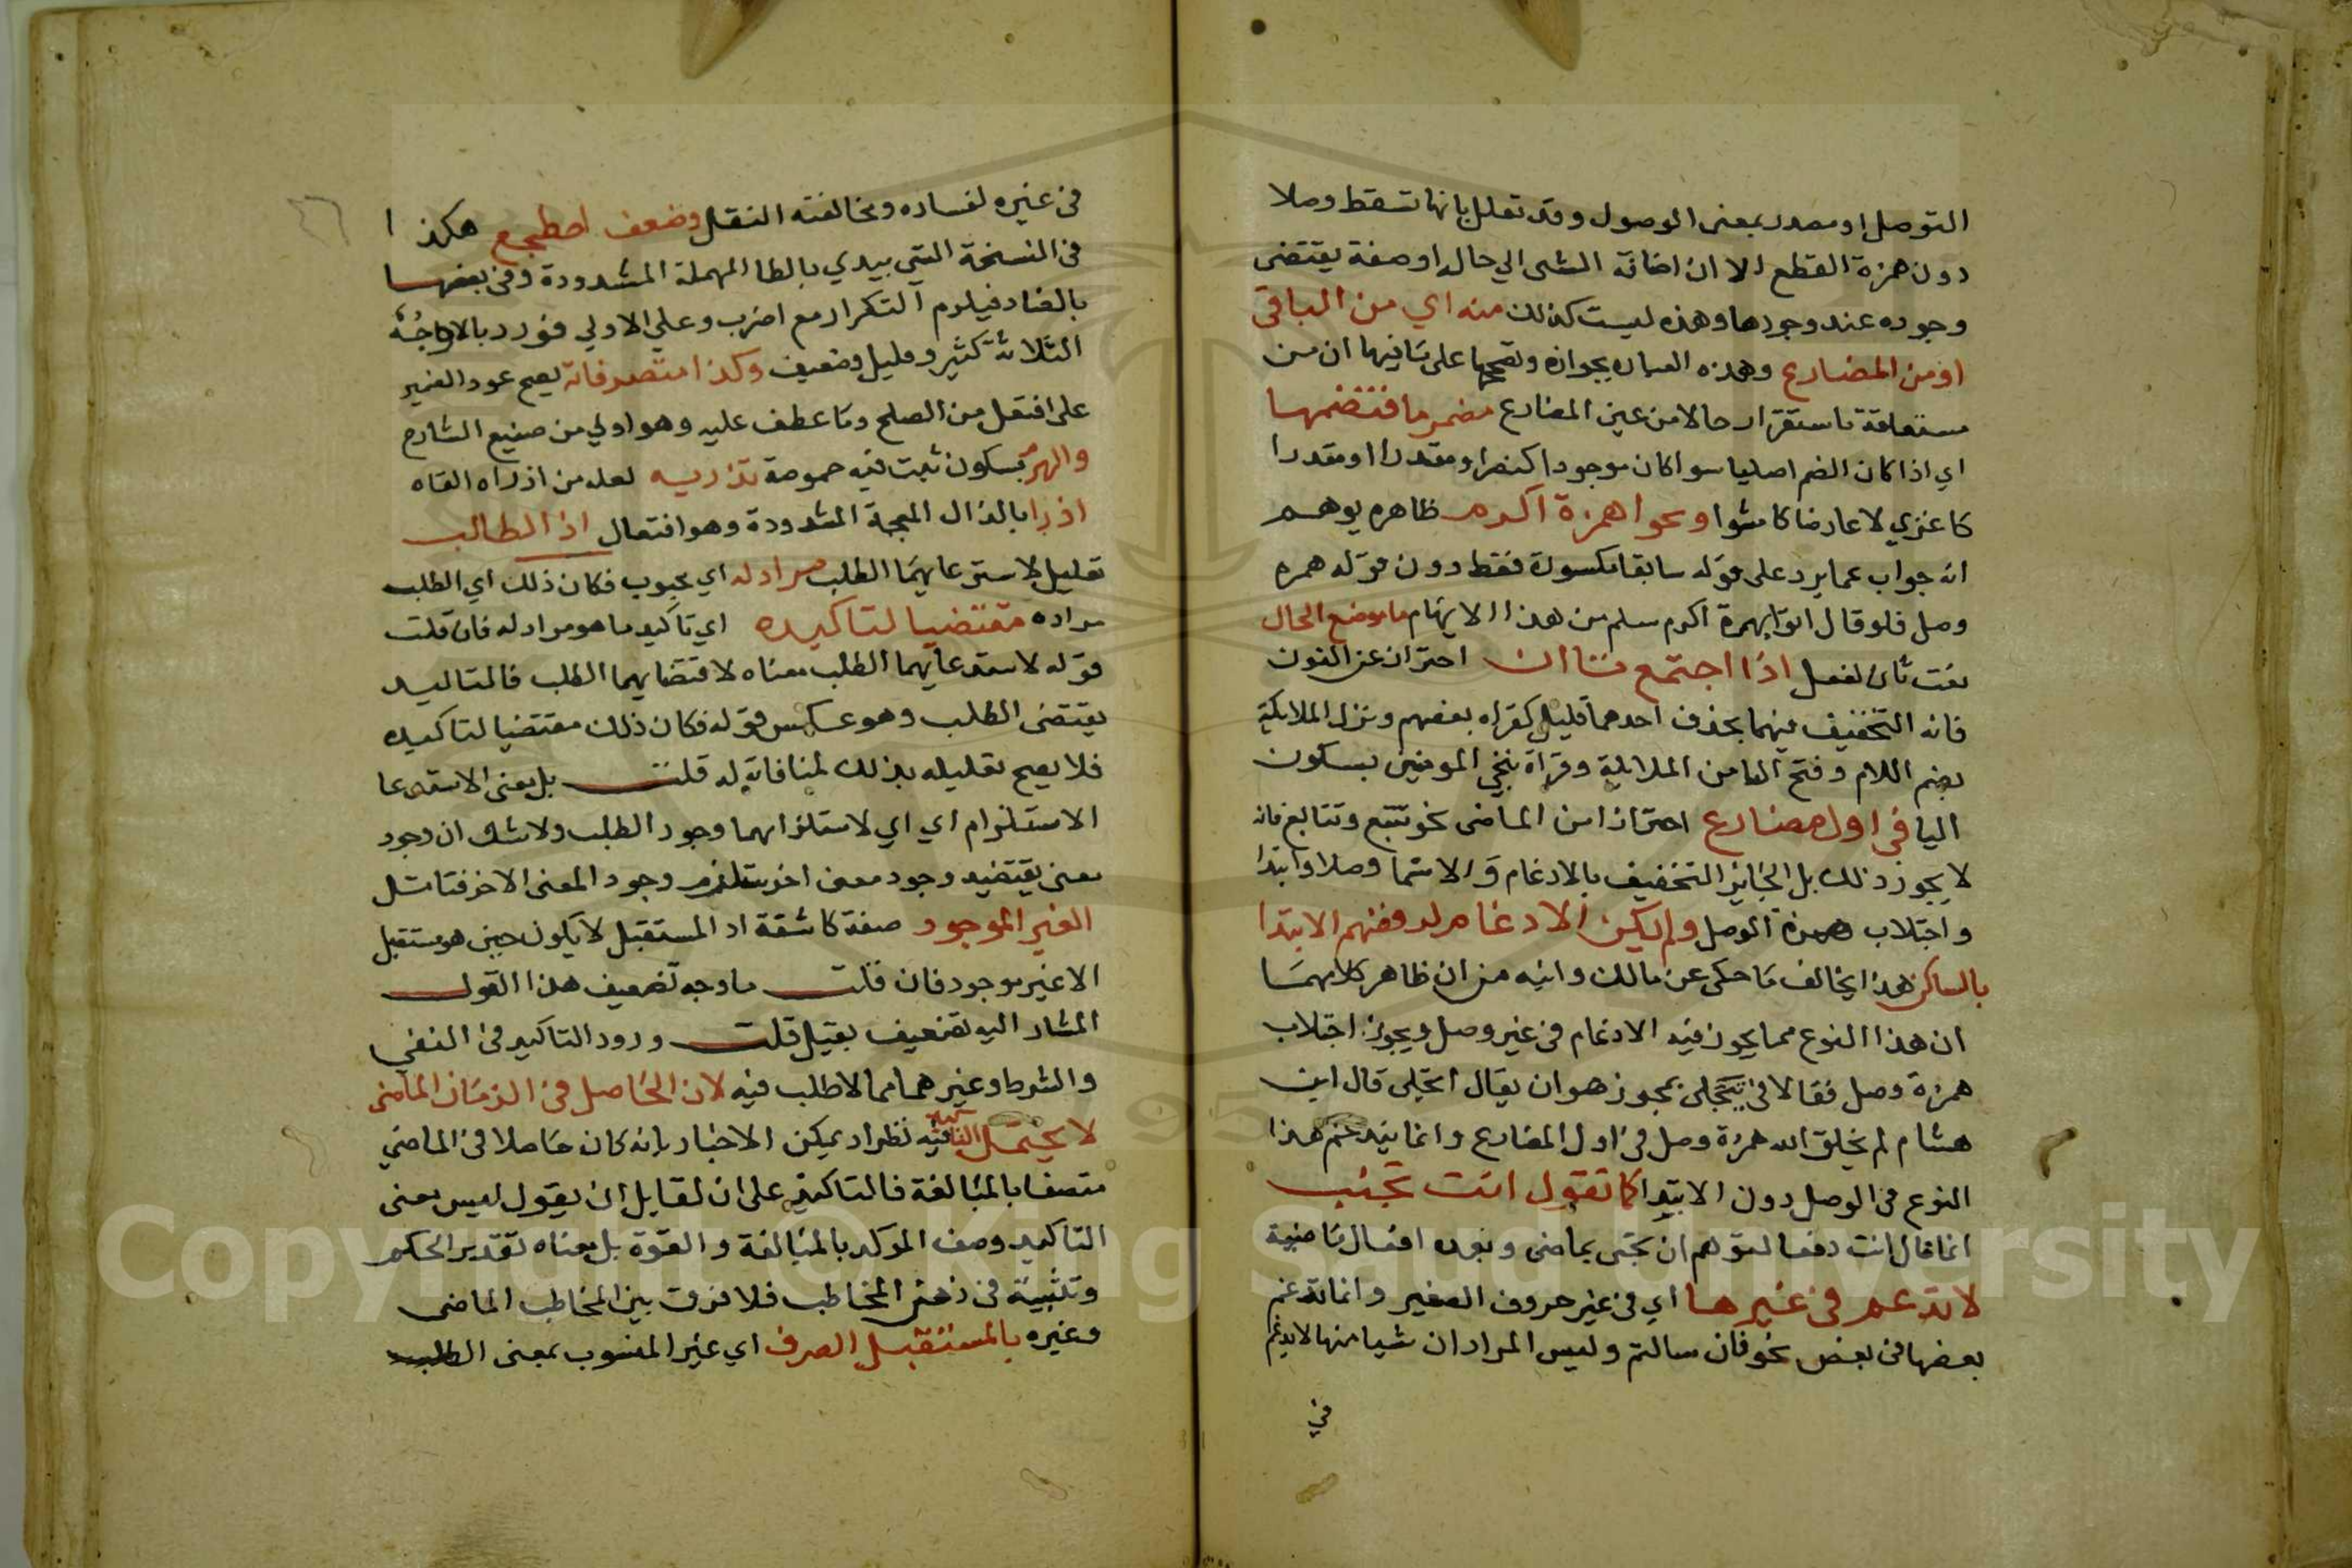 التوصل او مصدر بمعنى الوصول وقد تعلل بانها تسقط وصلا
دون همزة القطع الا ان اضافة الشى الي حال او صفة يقتضى
وجوده عند وجودها وهذه ليست كذلك منه اي من الباقى
او من المضارع وهذه العباره بجوازه وتصحيحها على ما فيها ان من
متعلقة باستقرار حالا من عين المضارع مضمر ما فتضمها
اي اذا كان الضم اصليا سوا كان موجودا كنصر او مقدرا او مقدرا
كاغزي لا عارضا كامشوا ونحوا همزة اكرم ظاهره يوهم
انه جواب عما يرد على قوله سابقا مكسورة فقط دون قوله همزه
وصل فلو قال اتوا بهمزة اكرم سلم من هذا الايهام ما موضع الحال
نعت ثان لفعل اذا اجتمع تاان احتراز عن النون
فانه التخفيف فيهما بحذف احدهما قليل كقراه بعضهم ونزل الملايكة
بضم اللام وفتح التا من الملايكة وقراة ننجي المومنين بسكون
اليا في اول مضارع احترازا من الماضى نحو تتبع وتتابع فانه
لا يجوز ذلك بل الجايز التخفيف بالادغام والاتمام وصلا وابتدا
واجتلاب همزة الوصل ولم يكن الادغام لرفضهم الابتدا
بالساكن هذا يخالف ما حكى عن مالك وابنه من ان ظاهر كلامهما
ان هذا النوع مما يجوز فيه الادغام في غير وصل ويجوز اجتلاب
همزة وصل فقالا في تتجلى يجوز هو ان يقال اتجلى قال ابن
هشام لم يخلق الله همزة وصل في اول المضارع وانما يدغم هذا
النوع في الوصل دون الابتدا كما تقول انت تجتب
انما قال انت دفعا لتوهم ان تجتى بماضى وبعده افعال ماضية
لا تدغم في غيرها اي في غير حروف الصفير وانما تدغم
بعضها في بعض نحو فان سالتم وليس المراد ان شيا منها لا يدغم
في
في غيره لفساده ومخالفته النقل وضعف اطجع هكذا
في النسخة التي بيدي بالطا المهملة المشدودة وفي بعضها
بالضاد فيلزم التكرار مع اضرب وعلي الاولي فورد بالاوجه
الثلاثة كثير وقليل وضعيف وكذا متصرفاته يصح عود الضمير
على افتعل من الصلح وما عطف عليه وهو اولي من صنيع الشارح
والهرم بسكون نبت فيه حموصة تذريه لعله من اذراه القاه
اذرا بالذال المعجمة المشدودة وهو افتعال اذ الطالب
تعليل لاستدعايهما الطلب مراد له اي محبوب فكان ذلك اي الطلب
مراده مقتضيا لتاكيده اي تاكيد ما هو مراد له فان قلت
قوله لاستدعايهما الطلب معناه لاقتضايهما الطلب فالتاكيد
يقتضى الطلب وهو عكس قوله فكان ذلك مقتضيا لتاكيده
فلا يصح تعليله بذلك لمنافاته له قلت بل يعنى الاستدعا
الاستلزام اي اي لاستلزامهما وجود الطلب ولا شك ان وجود
معنى يقتضيه وجود معنى اخر يستلزم وجود المعنى الاخر فتامل
الغير الموجود صفة كاشفة اد المستقبل لا يكون حين هو مستقبل
الا غير موجود فان قلت ما وجه تضعيف هذا القول
المشار اليه تضعيف بقيل قلت ورود التاكيد في النفي
والشرط وغيرهما مما لا طلب فيه لان الحاصل في الزمان الماضى
لا يحتمل التاكيد فيه نظر اد يمكن الاخبار بانه كان حاصلا في الماضي
متصفا بالمبالغة فالتاكيد على ان لقايل ان يقول ليس معنى
التاكيد وصف الموكد بالمبالغة والقوة بل معناه تقدير الحكم
وتثبيته في ذهن المخاطب فلا فرق بين المخاطب الماضى
وغيره بالمستقبل الصرف اي غير المنسوب بمعنى الطلب
Copyright © King Saud University